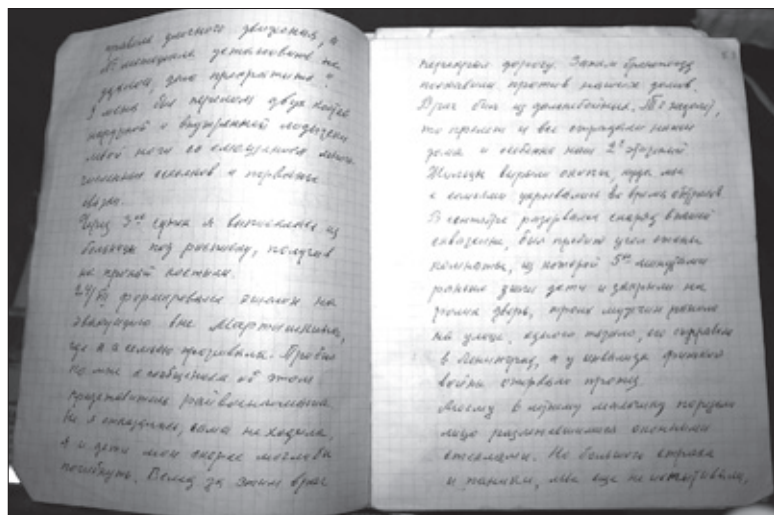 правила уличного движения, а
милиционера установить не
удалось, дело прекратить".
У меня был перелом двух костей
наружной и внутренней лодыжек
левой ноги со смещением много-
численных осколков и порванные
связки.
Через 3-е суток я выписалась из
больницы под расписку, получив
на прокат костыли.
24/VII формировался эшелон на
эвакуацию вне Мартышкина,
где я с семьею проживала. Прибыл
ко мне с сообщением об этом
представитель райвоенкомата
Но я отказалась, сама не ходила,
я и дети мои скорее могли бы
погибнуть. Вслед за этим враг
перекрыл дорогу. Затем бронепоезд
поставили против наших домов.
Враг бил из дальнобойных. То недолет,
то перелет и все страдали наши
дома и особенно наш 2-й жилой
Жильцы вырыли окопы, куда мы
с семьями укрывались во время обстрелов.
В сентябре разорвался снаряд в нашей
скважине, был пробит угол стены
комнаты, из которой 5-ю минутами
раньше ушли дети и закрыли на
дверь, троих мужчин ранило
на улице, одного тяжело, его отправили
в Ленинград, а у инвалида финской
войны оторвало протез.
Моему в мальчику порезало
лицо разлетевшимися оконными
стеклами. Но большого страха
и паники, мы еще не испытывали,